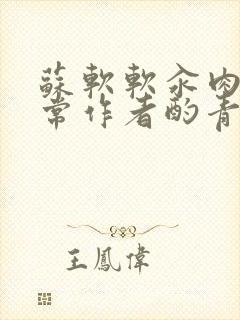 蘇軟軟汆肉
常作者酌青
王鳳偉